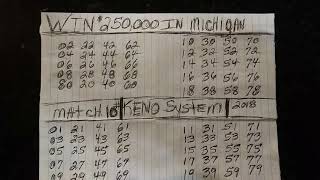 WIN $250,000 IN MICHIGAN
02 22 42 62 10 30 50 70
04 24 44 64 12 32 52 72
06 26 46 66 14 34 54 74
08 28 48 68 16 36 56 76
80 20 40 60 18 38 58 78
MATCH 10 KENO SYSTEM 2018
01 21 41 61 11 31 51 71
03 23 43 63 13 33 53 73
05 25 45 65 15 35 55 75
07 27 47 67 17 37 57 77
09 29 49 69 19 39 59 79